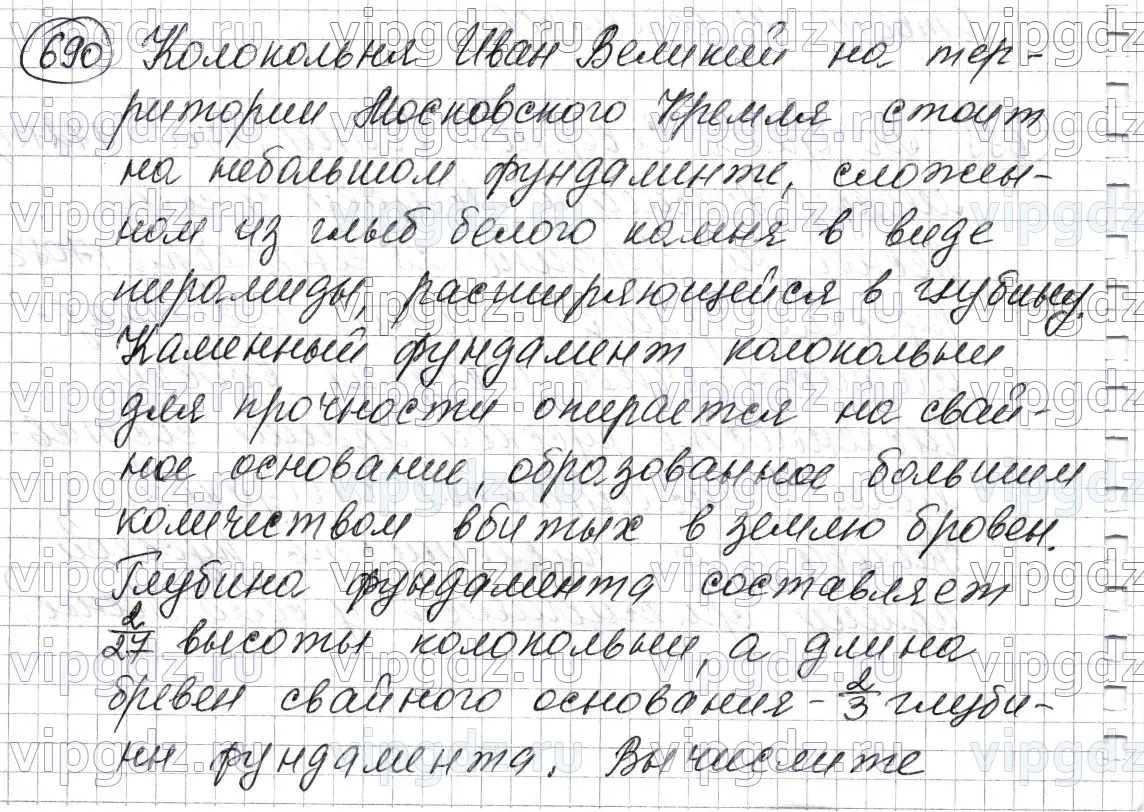 690 Колокольня Иван Великий на тер-
ритории Московского Кремля стоит
на небольшом фундаменте, сложен-
ном из глыб белого камня в виде
пирамиды, расширяющейся в глубину.
Каменный фундамент колокольни
для прочности опирается на свай-
ное основание, образованное большим
количеством вбитых в землю бровен.
Глубина фундамента составляет
2/27 высоты колокольни, а длина
бревен свайного основания - 2/3 глуби-
ны фундамента. Вычислите
vipgdz.ru